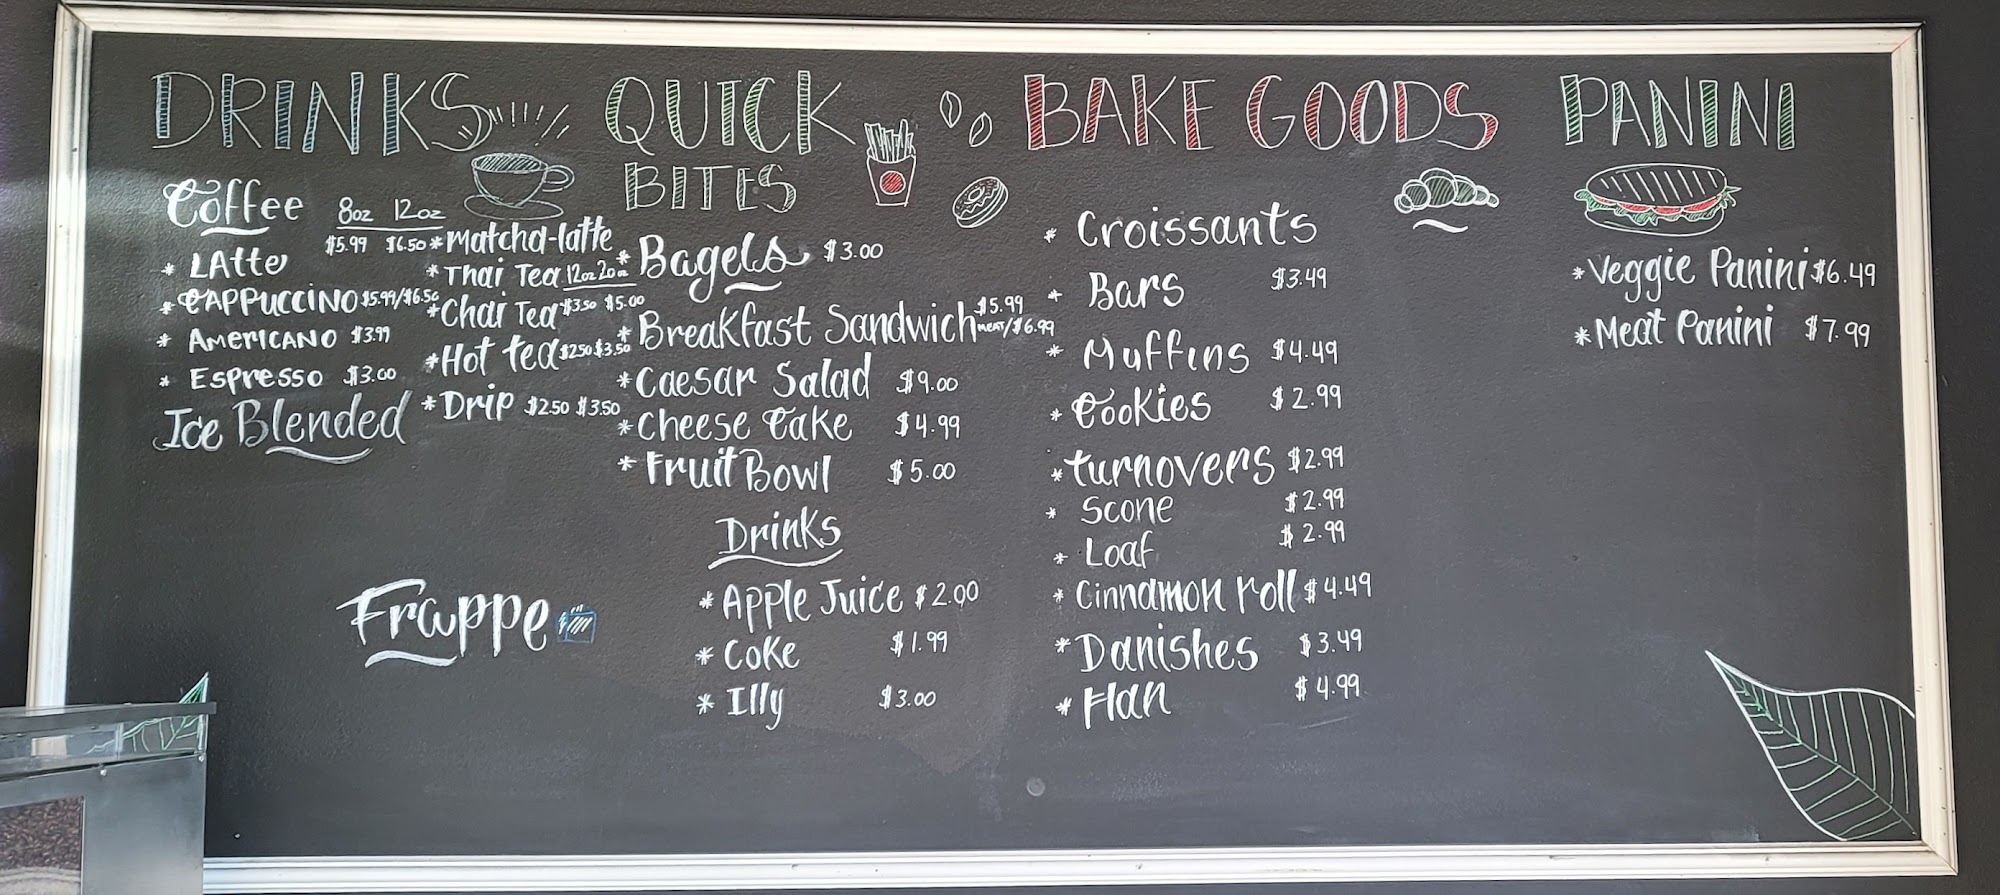 DRINKS
Coffee 8oz 12oz
$5.99 $6.50
* LAtte
* CAPPUCCINO $5.99/$6.50
* AMERICANO $3.99
* Espresso $3.00
Ice Blended
* Matcha-latte
* Thai Tea 12oz 20oz
* Chai Tea $3.50 $5.00
* Hot tea $2.50 $3.50
* Drip $2.50 $3.50
Frappe
QUICK
BITES
* Bagels $3.00
* Breakfast Sandwich $5.99
MEAT/$6.99
* Caesar Salad $9.00
* Cheese Cake $4.99
* Fruit Bowl $5.00
Drinks
* Apple Juice $2.00
* Coke $1.99
* Illy $3.00
BAKE GOODS
* Croissants
* Bars $3.49
* Muffins $4.49
* Cookies $2.99
* turnovers $2.99
* Scone $2.99
* Loaf $2.99
* Cinnamon roll $4.49
* Danishes $3.49
* Flan $4.99
PANINI
* Veggie Panini $6.49
* Meat Panini $7.99